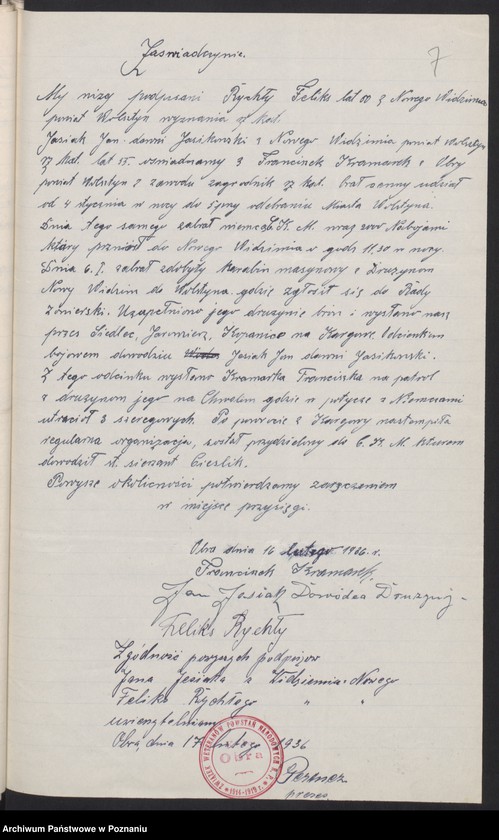 Zaświadczynie.
7
My niżej podpisani Rychły Feliks lat 60 z Nowego Widzimia
powiat Wolsztyn wyznania rz kat.
Jasiak Jan dawni Jasikowski z Nowego Widzimia powiat Wolsztyn
rz kat. lat 55. oswiadczamy z Francinek Kramarek z Obry
powiat Wolsztyn z zawodu zagrodnik rz kat. brał czenny udział
od 4 stycznia w nocy do 5go odebraniu Miasta Wolsztyna.
Dnia tego samego zabrał niemcą C. K. M. wraz 2000 Nabojami
który przniósł do Nowego Widzimia o godz 11.30 w nocy.
Dnia 6. I. zabrał zdobyty karabin maszynowy z Drużynom
Nowy Widzim do Wolsztyna. gdzie zgłosił się do Rady
Żonierski. Uzupełniono jego drużynie broń i wysłano nasz
przes Siedlec, Jaromierz, Kopanice na Kargowe. Odcinkiem
bojowem dowodziu Jasiak Jan dawni Jasikowski.
Z tego odcinku wysłano Kramarka Francinka na patrol
z drużynom jego na Chwalim gdzie w potyczce z Niemcami
utracioł 3 szeregowych. Po powrocie z Kargowy nastąmpiła
regularna organizacja, został przydzielony do C. K. M. kturem
dowodził st. sierzant Cieślik.
Powysze okoliczności potwierdzamy zaręczeniem
w miejsce przysięgi.
Obra dnia 16 lutego 1936. r.
Francinek Kramarek,
Jan Jasiak Dowódca Drużyny-
Feliks Rychły
Zgodność powyszych podpisow
Jana Jasiaka z Widzimia-Nowego
Feliks Rychłego " "
uwierzytelniam
Obra, dnia 17 lutego 1936
ZWIĄZEK WETERANÓW POWSTAŃ NARODOWYCH R. P.
Obra
1914-1919 r.
prezes
Archiwum Państwowe w Poznaniu